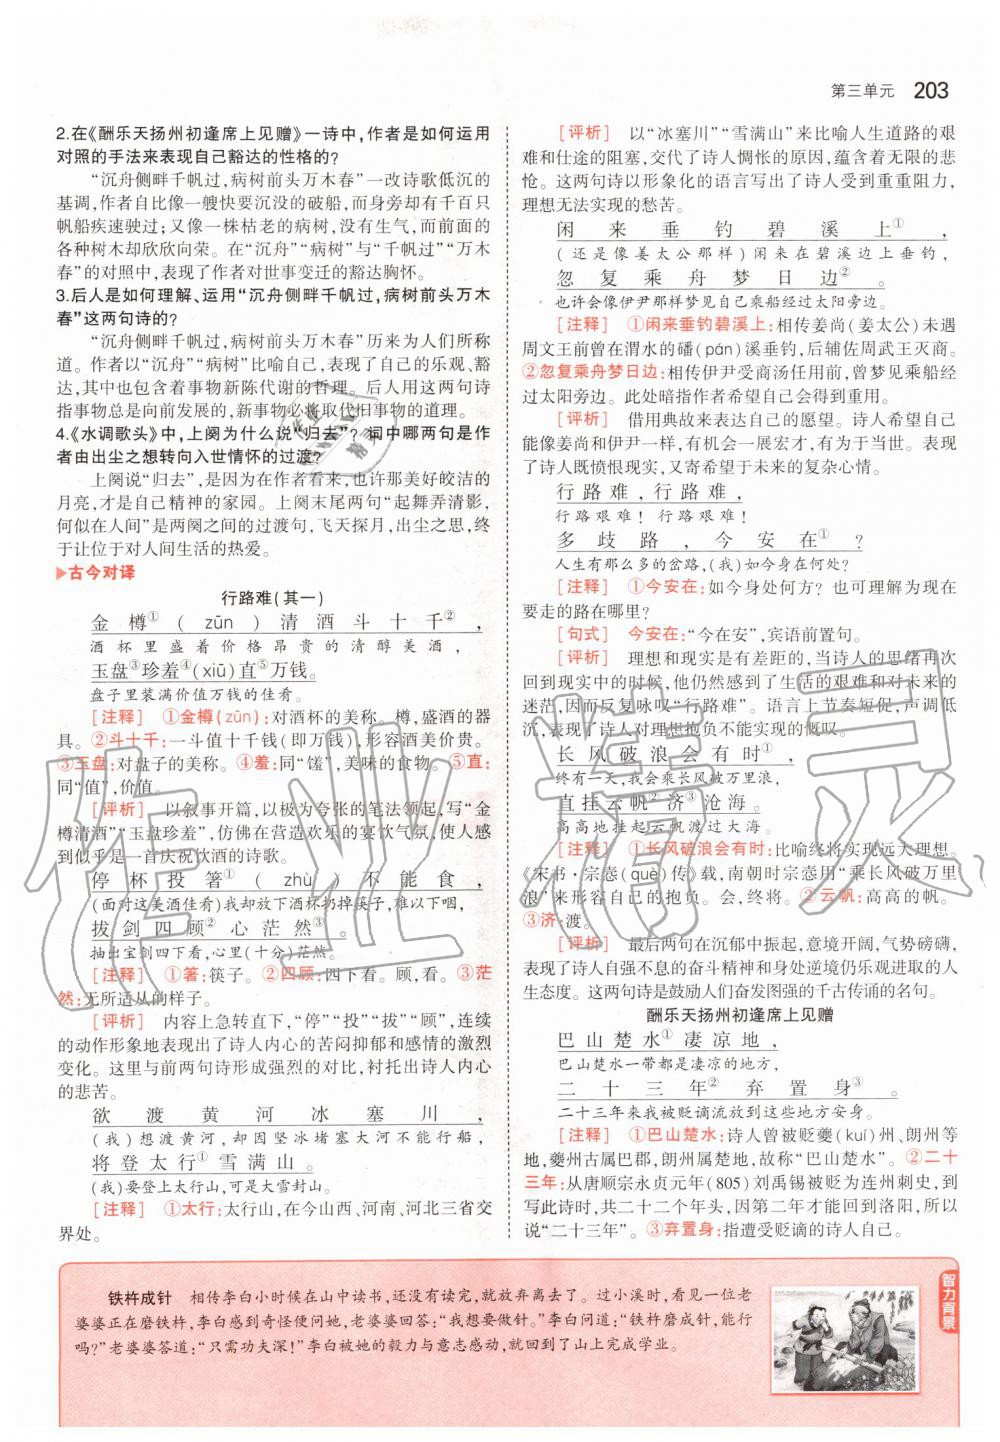 第三单元 203
2.在《酬乐天扬州初逢席上见赠》一诗中,作者是如何运用
对照的手法来表现自己豁达的性格的?
“沉舟侧畔千帆过,病树前头万木春”一改诗歌低沉的
基调,作者自比像一艘快要沉没的破船,而身旁却有千百只
帆船疾速驶过;又像一株枯老的病树,没有生气,而前面的
各种树木却欣欣向荣。在“沉舟”“病树”与“千帆过”“万木
春”的对照中,表现了作者对世事变迁的豁达胸怀。
3.后人是如何理解、运用“沉舟侧畔千帆过,病树前头万木
春”这两句诗的?
“沉舟侧畔千帆过,病树前头万木春”历来为人们所称
道。作者以“沉舟”“病树”比喻自己,表现了自己的乐观、豁
达,其中也包含着事物新陈代谢的哲理。后人用这两句诗
指事物总是向前发展的,新事物必将取代旧事物的道理。
4.《水调歌头》中,上阕为什么说“归去”?词中哪两句是作
者由出尘之想转向入世情怀的过渡?
上阕说“归去”,是因为在作者看来,也许那美好皎洁的
月亮,才是自己精神的家园。上阕末尾两句“起舞弄清影,
何似在人间”是两阕之间的过渡句,飞天探月,出尘之思,终
于让位于对人间生活的热爱。
▶古今对译
行路难(其一)
金樽①(zūn)清酒斗十千②,
酒杯里盛着价格昂贵的清醇美酒,
玉盘③珍羞④(xiū)直⑤万钱。
盘子里装满价值万钱的佳肴。
[注释] ①金樽(zūn):对酒杯的美称。樽,盛酒的器
具。②斗十千:一斗值十千钱(即万钱),形容酒美价贵。
③玉盘:对盘子的美称。④羞:同“馐”,美味的食物。⑤直:
同“值”,价值。
[评析] 以叙事开篇,以极为夸张的笔法领起,写“金
樽清酒”“玉盘珍羞”,仿佛在营造欢乐的宴饮气氛,使人感
到似乎是一首庆祝饮酒的诗歌。
停杯投箸①(zhù)不能食,
(面对这美酒佳肴)我却放下酒杯扔掉筷子,难以下咽,
拔剑四顾②心茫然③。
抽出宝剑四下看,心里(十分)茫然。
[注释] ①箸:筷子。②四顾:四下看。顾,看。③茫
然:无所适从的样子。
[评析] 内容上急转直下,“停”“投”“拔”“顾”,连续
的动作形象地表现出了诗人内心的苦闷抑郁和感情的激烈
变化。这里与前两句诗形成强烈的对比,衬托出诗人内心
的悲苦。
欲渡黄河冰塞川,
(我)想渡黄河,却因坚冰堵塞大河不能行船,
将登太行①雪满山。
(我)要登上太行山,可是大雪封山。
[注释] ①太行:太行山,在今山西、河南、河北三省交
界处。
[评析] 以“冰塞川”“雪满山”来比喻人生道路的艰
难和仕途的阻塞,交代了诗人惆怅的原因,蕴含着无限的悲
怆。这两句诗以形象化的语言写出了诗人受到重重阻力,
理想无法实现的愁苦。
闲来垂钓碧溪上①,
(还是像姜太公那样)闲来在碧溪边上垂钓,
忽复乘舟梦日边②。
也许会像伊尹那样梦见自己乘船经过太阳旁边。
[注释] ①闲来垂钓碧溪上:相传姜尚(姜太公)未遇
周文王前曾在渭水的磻(pán)溪垂钓,后辅佐周武王灭商。
②忽复乘舟梦日边:相传伊尹受商汤任用前,曾梦见乘船经
过太阳旁边。此处暗指作者希望自己会得到重用。
[评析] 借用典故来表达自己的愿望。诗人希望自己
能像姜尚和伊尹一样,有机会一展宏才,有为于当世。表现
了诗人既愤恨现实,又寄希望于未来的复杂心情。
行路难,行路难,
行路艰难!行路艰难!
多歧路,今安在①?
人生有那么多的岔路,(我)如今身在何处?
[注释] ①今安在:如今身处何方?也可理解为现在
要走的路在哪里?
[句式] 今安在:“今在安”,宾语前置句。
[评析] 理想和现实是有差距的,当诗人的思绪再次
回到现实中的时候,他仍然感到了生活的艰难和对未来的
迷茫,因而反复咏叹“行路难”。语言上节奏短促,声调低
沉,表现了诗人对理想抱负不能实现的慨叹。
长风破浪会有时①,
终有一天,我会乘长风破万里浪,
直挂云帆②济③沧海。
高高地挂起云帆渡过大海。
[注释] ①长风破浪会有时:比喻终将实现远大理想。
《宋书·宗悫(què)传》载,南朝时宗悫用“乘长风破万里
浪”来形容自己的抱负。会,终将。②云帆:高高的帆。
③济:渡。
[评析] 最后两句在沉郁中振起,意境开阔,气势磅礴,
表现了诗人自强不息的奋斗精神和身处逆境仍乐观进取的人
生态度。这两句诗是鼓励人们奋发图强的千古传诵的名句。
酬乐天扬州初逢席上见赠
巴山楚水①凄凉地,
巴山楚水一带都是凄凉的地方,
二十三年②弃置身③。
二十三年来我被贬谪流放到这些地方安身。
[注释] ①巴山楚水:诗人曾被贬夔(kuí)州、朗州等
地,夔州古属巴郡,朗州属楚地,故称“巴山楚水”。②二十
三年:从唐顺宗永贞元年(805)刘禹锡被贬为连州刺史,到
写此诗时,共二十二个年头,因第二年才能回到洛阳,所以
说“二十三年”。③弃置身:指遭受贬谪的诗人自己。
智力背景
铁杵成针 相传李白小时候在山中读书,还没有读完,就放弃离去了。过小溪时,看见一位老
婆婆正在磨铁杵,李白感到奇怪便问她,老婆婆回答:“我想要做针。”李白问道:“铁杵磨成针,能行
吗?”老婆婆答道:“只需功夫深!”李白被她的毅力与意志感动,就回到了山上完成学业。
作业精灵